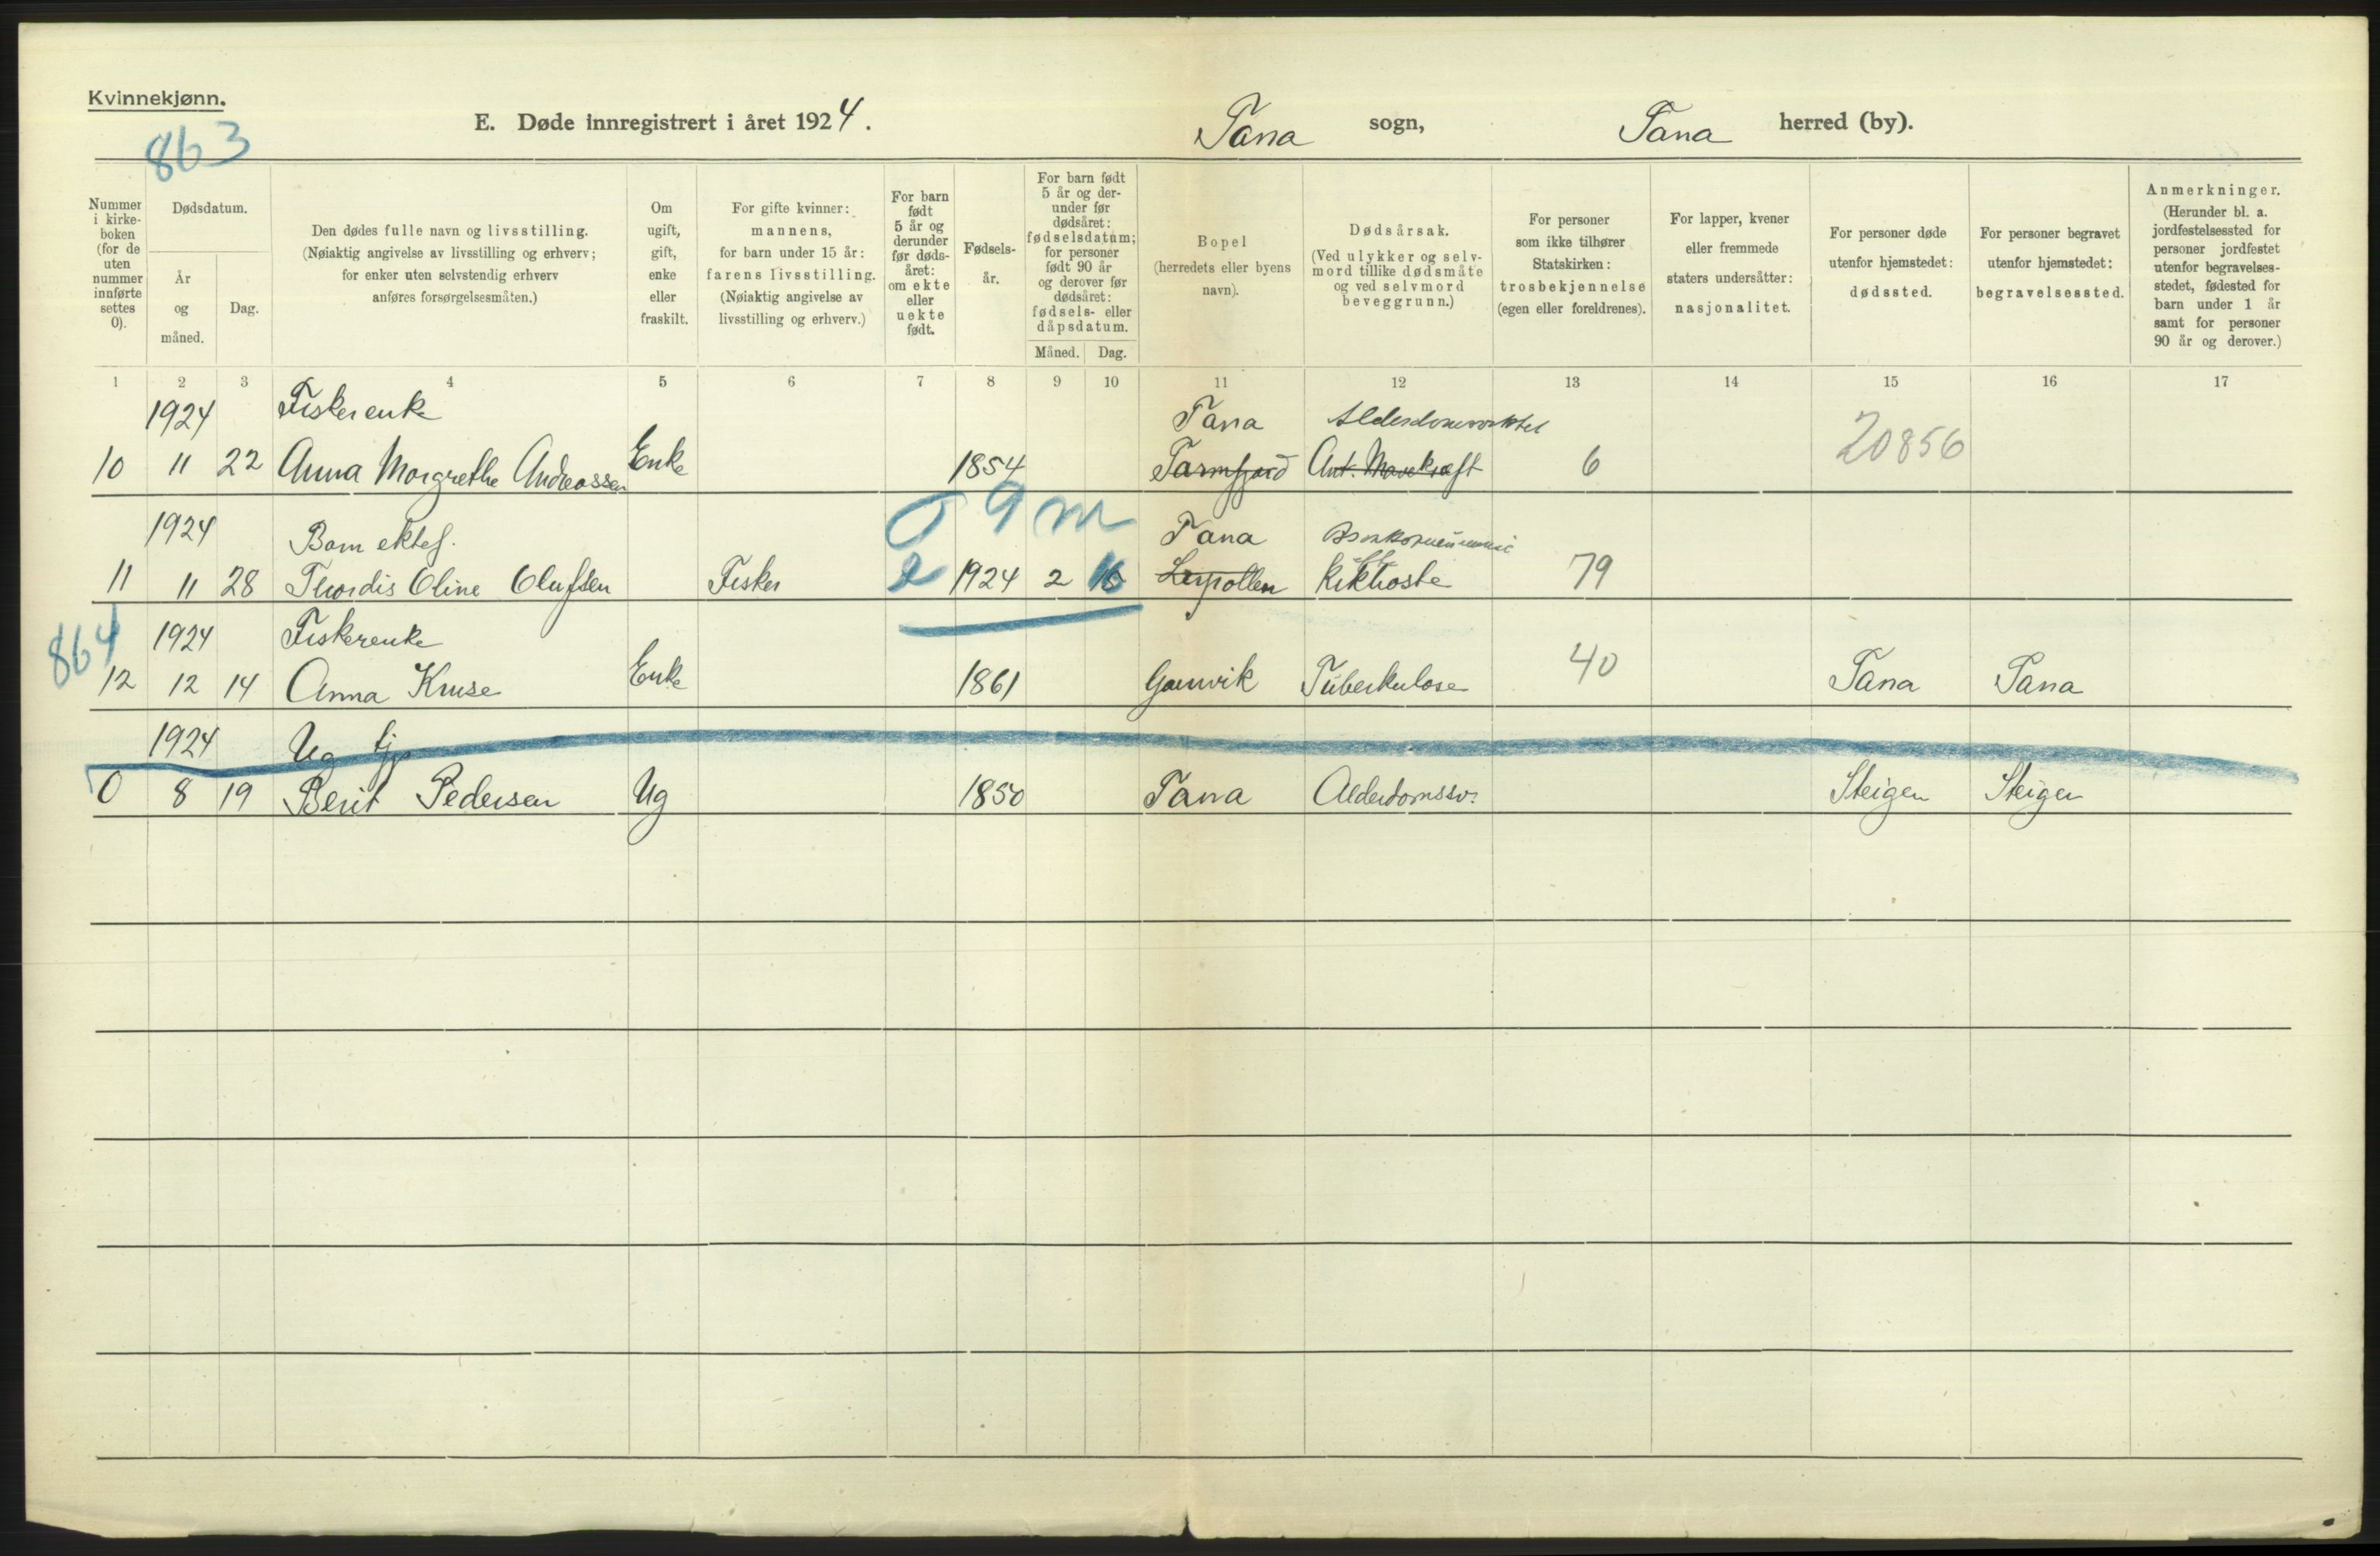 Kvinnekjønn.
863
E. Døde innregistrert i året 1924. Tana sogn, Tana herred (by).
Nummer i kirke-boken (for de uten nummer innførte settes 0).
Dødsdatum.
År og måned.
Dag.
Den dødes fulle navn og livsstilling.
(Nøiaktig angivelse av livsstilling og erhverv;
for enker uten selvstendig erhverv
anføres forsørgelsesmåten.)
Om ugift, gift, enke eller fraskilt.
For gifte kvinner:
mannens,
for barn under 15 år:
farens livsstilling.
(Nøiaktig angivelse av
livsstilling og erhverv.)
For barn født 5 år og derunder før døds-året: om ekte eller uekte født.
Fødsels-år.
For barn født 5 år og der-under før dødsåret: fødselsdatum; for personer født 90 år og derover før dødsåret: fødsels- eller dåpsdatum.
Måned. Dag.
Bopel
(herredets eller byens
navn).
Dødsårsak.
(Ved ulykker og selv-
mord tillike dødsmåte
og ved selvmord
beveggrunn.)
For personer
som ikke tilhører
Statskirken:
trosbekjennelse
(egen eller foreldrenes).
For lapper, kvener
eller fremmede
staters undersåtter:
nasjonalitet.
For personer døde
utenfor hjemstedet:
dødssted.
For personer begravet
utenfor hjemstedet:
begravelsessted.
Anmerkninger.
(Herunder bl. a.
jordfestelsessted for
personer jordfestet
utenfor begravelses-
stedet, fødested for
barn under 1 år
samt for personer
90 år og derover.)
1 2 3 4 5 6 7 8 9 10 11 12 13 14 15 16 17
1924 Fiskerenke Tana 20856
10 11 22 Anna Margrethe Andreassen Enke 1854 6
9 m
1924 Barn ektef. Tana
11 11 28 Thordis Oline Olufsen Fisker e 1924 2 16 Leirpollen Kikhoste 79
864
1924 Fiskerenke
12 12 14 Anna Kruse Enke 1861 Gamvik Tuberkulose 40 Tana Tana
1924 Ug
0 8 19 Berit Pedersen Ug 1850 Tana Alderdomssv. Steigen Steigen